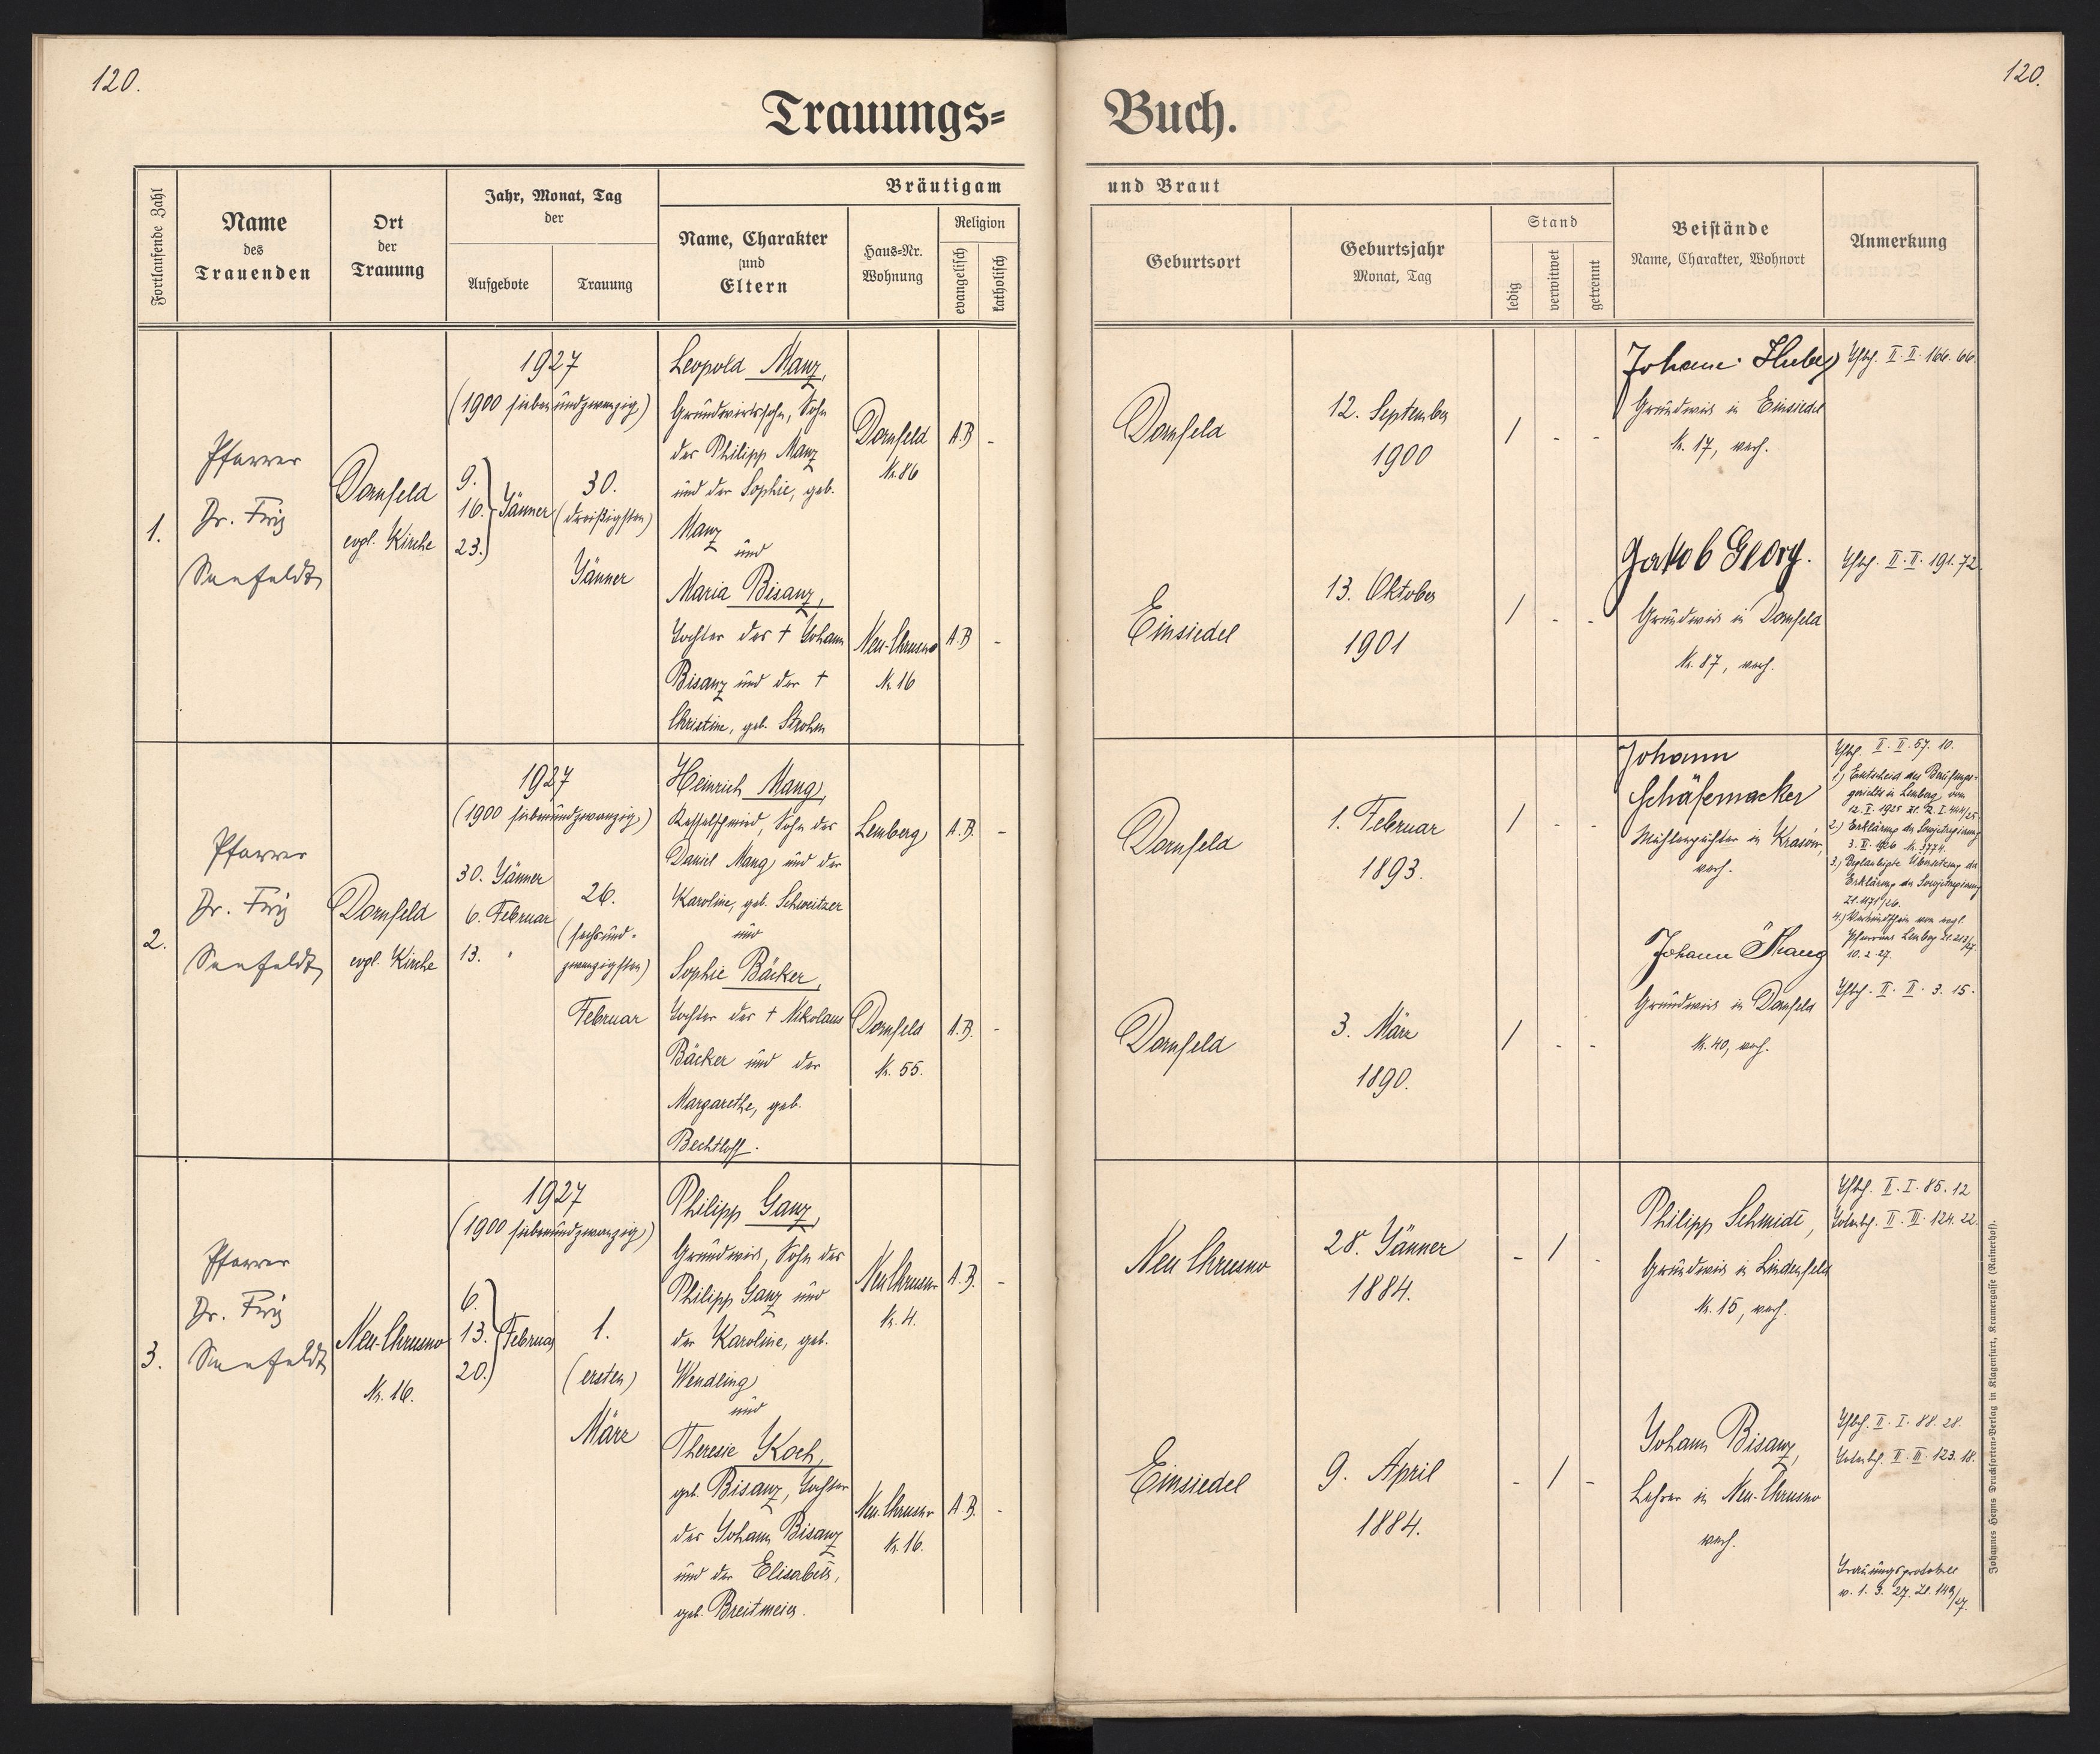 120.
120.
Trauungs=
Buch.
Fortlaufende Zahl
Name
des
Trauenden
Ort
der
Trauung
Jahr, Monat, Tag
der
Aufgebote
Trauung
Bräutigam
Name, Charakter
und
Eltern
Haus=Nr.
Wohnung
Religion
evangelisch
katholisch
und Braut
Geburtsort
Geburtsjahr
Monat, Tag
Stand
ledig
verwitwet
getrennt
Beistände
Name, Charakter, Wohnort
Anmerkung
1.
Pfarrer
Dr. Fritz
Seefeldt
Dornfeld
evgl. Kirche
1927
(1900 siebenundzwanzig)
9.
16. Jänner
23.
30.
(dreißigsten)
Jänner
Leopold Manz,
Grundwirtssohn, Sohn
des Philipp Manz
und der Sophie, geb.
Manz
und
Maria Bisanz,
Tochter des † Johann
Bisanz und der †
Christine, geb. Strohm
Dornfeld
Nr. 86
A.B -
Neu-Chrusno
Nr. 16
A.B -
Dornfeld
12. September
1900
/ - -
Einsiedel
13. Oktober
1901
/ - -
Johann Huber
Grundwirt in Einsiedel
Nr. 17, verh.
Jakob Georg.
Grundwirt in Dornfeld
Nr. 87, verh.
II. II. 166. 66.
II. II. 191. 72.
2.
Pfarrer
Dr. Fritz
Seefeldt
Dornfeld
evgl. Kirche
1927
(1900 siebenundzwanzig)
30. Jänner
6. Februar
13. "
26.
(sechsund-
zwanzigsten)
Februar
Heinrich Mang,
Kesselschmied, Sohn des
Daniel Mang und der
Karoline, geb. Schweitzer
und
Sophie Bäcker,
Tochter des † Nikolaus
Bäcker und der
Margarethe, geb.
Bechtloff.
Lemberg
A.B. -
Dornfeld
Nr. 55.
A.B. -
Dornfeld
1. Februar
1893.
/ - -
Dornfeld
3. März
1890.
/ - -
Johann
Schäfernacker
Mühlenpächter in Krasów,
verh.
Johann Mang
Grundwirt in Dornfeld
Nr. 40, verh.
II. II. 57. 10.
1.) Entscheid des Berufungs-
gerichts in Lemberg vom
2.) Erklärung der Sowjetregierung
3.) Beglaubigte Übersetzung der
Erklärung der Sowjetregierung
Zl. 1171/26.
4.) vom evgl.
Pfarramt Lemberg
10. 2. 27.
II. II. 3. 15.
3.
Pfarrer
Dr. Fritz
Seefeldt
Neu-Chrusno
Nr. 16.
1927
(1900 siebenundzwanzig)
6.
13. Februar
20.
1.
(ersten)
März
Philipp Ganz,
Grundwirt, Sohn des
Philipp Ganz und
der Karoline, geb.
Wendling
und
Theresie Koch,
geb. Bisanz, Tochter
des Johann Bisanz
und der Elisabeth,
geb. Breitmeier.
Neu Chrusno
Nr. 4.
A.B. -
Neu-Chrusno
Nr. 16.
A.B. -
Neu Chrusno
28. Jänner
1884.
- / -
Einsiedel
9. April
1884.
- / -
Philipp Schmidt,
Grundwirt in Lindenfeld
Nr. 15, verh.
Johann Bisanz,
Lehrer in Neu-Chrusno
verh.
II. I. 85. 12
II. III. 124. 22.
II. I. 88. 28.
II. III. 123. 18.
Trauungsprotokoll
v. 1. 3. 27. Zl. 149/27.
Johannes Heyns Drucksorten=Verlag in Klagenfurt, Kramergasse (Rainerhof).